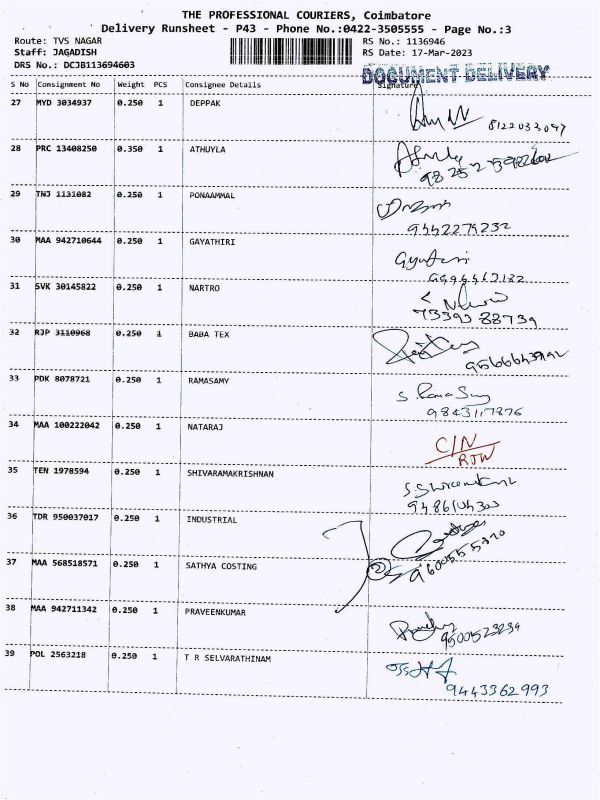 THE PROFESSIONAL COURIERS, Coimbatore
Delivery Runsheet - P43 - Phone No.:0422-3505555 - Page No.:3
Route: TVS NAGAR RS No.: 1136946
Staff: JAGADISH RS Date: 17-Mar-2023
DRS No.: DCJB113694603 DOCUMENT DELIVERY
S No Consignment No Weight PCS Consignee Details Signature
27 MYD 3034937 0.250 1 DEPPAK
8122033097
28 PRC 13408250 0.350 1 ATHUYLA
29 TNJ 1131082 0.250 1 PONAAMMAL
9442279232
30 MAA 942710644 0.250 1 GAYATHIRI
Gyatiri
31 SVK 30145822 0.250 1 NARTRO
7339388739
32 RJP 3110968 0.250 1 BABA TEX
33 PDK 8078721 0.250 1 RAMASAMY
S. Rama Samy
34 MAA 100222042 0.250 1 NATARAJ
C/N
RTW
35 TEN 1978594 0.250 1 SHIVARAMAKRISHNAN
36 TDR 950037017 0.250 1 INDUSTRIAL
37 MAA 568518571 0.250 1 SATHYA COSTING
2
38 MAA 942711342 0.250 1 PRAVEENKUMAR
39 POL 2563218 0.250 1 T R SELVARATHINAM
9443362993